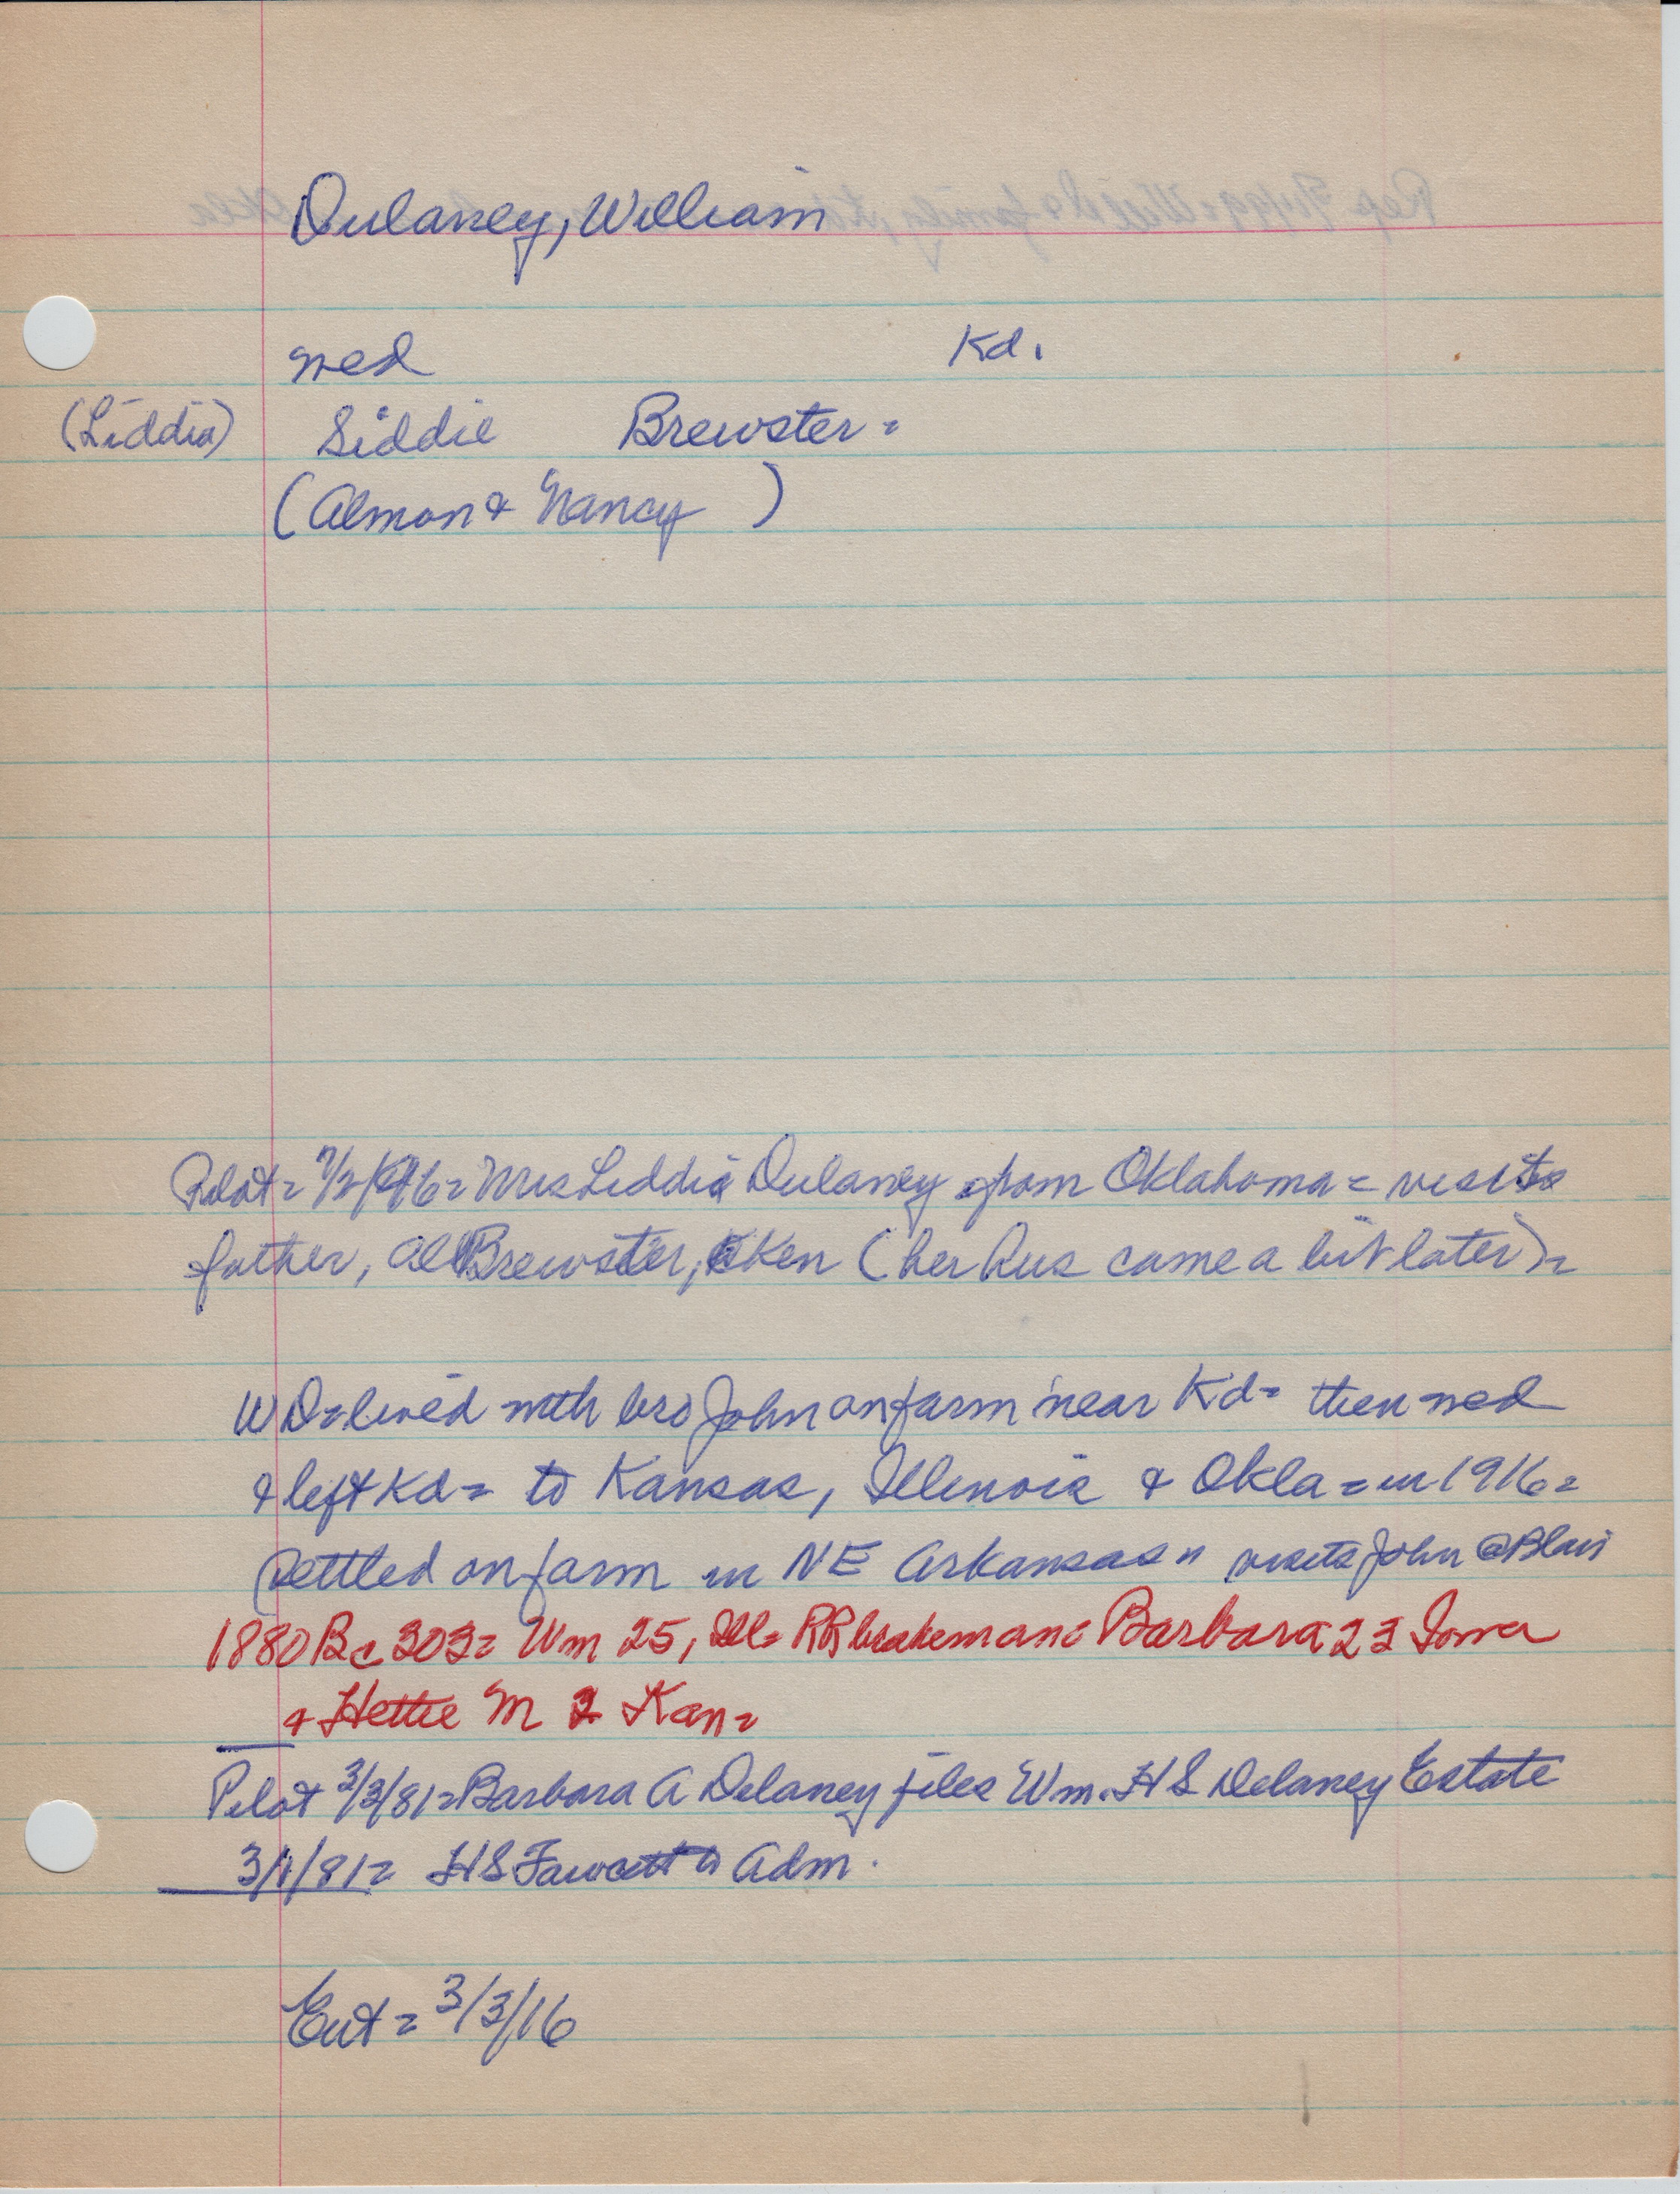 Dulaney, William
med Kd.
(Liddia) Liddie Brewster =
(Almon & Nancy )
Pilot = 7/2/1916 = Mrs Liddia Dulaney from Oklahoma = visits
father, Al Brewster, Ken (her hus came a bit later) =
WD = lived with bro John on farm near Kd = then med
& left Kd = to Kansas, Illinois & Okla = in 1916 =
settled on farm in NE Arkansas = visits John @ Blair
1880 Bc 303 = Wm 25, Ill = RR brakeman = Barbara 23 Iowa
& Hettie M 2 Kan =
Pilot 3/3/81 = Barbara A Delaney files Wm. H S Delaney Estate
3/1/81 = H S Fawcett = Adm.
Ent = 3/3/16